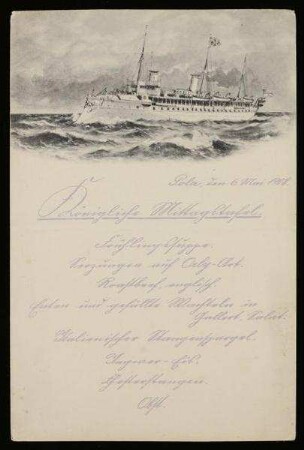 Pola, den 6. Mai 1908.
Königliche Mittagstafel.
Frühlingssuppe.
Seezungen auf Orly-Art.
Roastbeef, englisch.
Enten und gefüllte Wachteln in
Gallert, Salat.
Italienischer Stangenspargel.
Ingwer-Eis.
Käsestangen.
Obst.